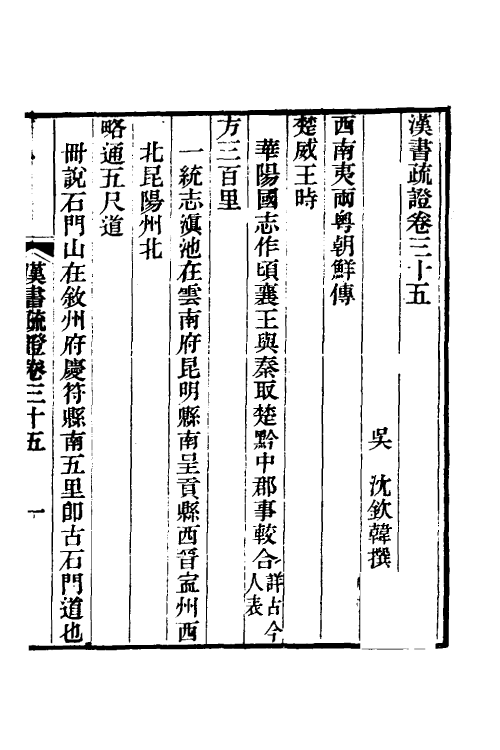 漢書疏證卷三十五
吳 沈欽韓撰
西南夷兩粵朝鮮傳
楚威王時
華陽國志作頃襄王與秦取楚黔中郡事較合詳古今人表
方三百里
一統志滇池在雲南府昆明縣南呈貢縣西晉寍州西
北昆陽州北
略通五尺道
冊說石門山在敘州府慶符縣南五里卽古石門道也
漢書疏證卷三十五 一